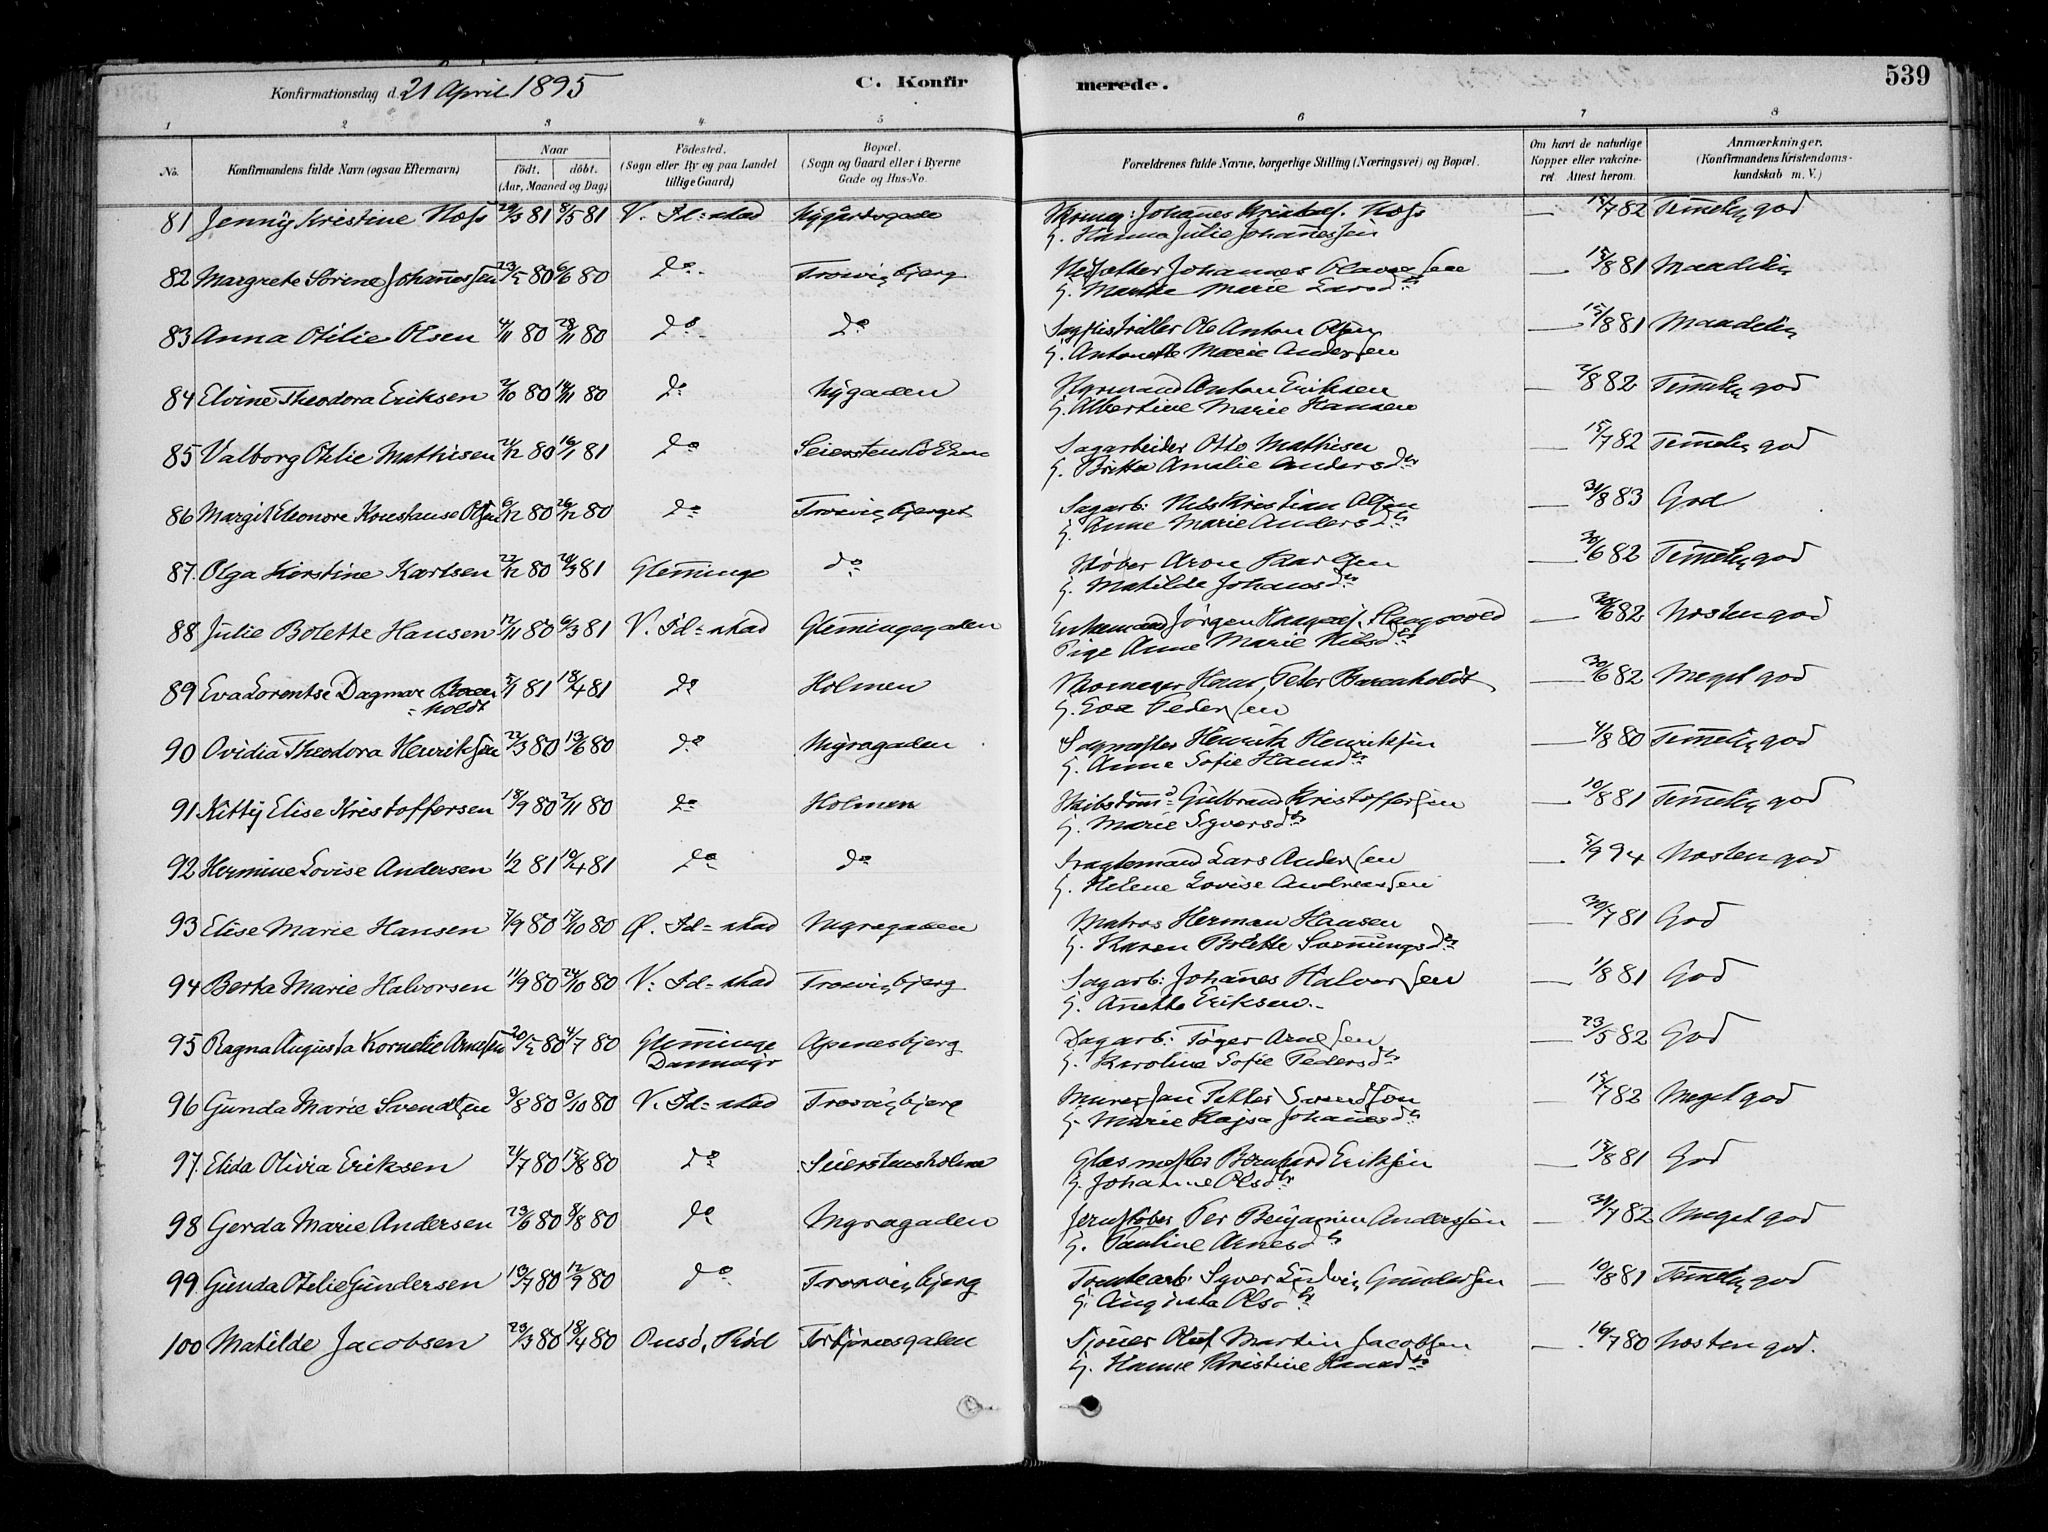 539
Konfirmationsdag d. 21 April 1895 C. Konfirmerede.
1 2 3 4 5 6 7 8
No. Konfirmandens fulde Navn (ogsaa Efternavn) Naar født. døbt. (Aar, Maaned og Dag) Födested. (Sogn eller By og paa Landet tillige Gaard) Bopæl. (Sogn og Gaard eller i Byerne Gade og Hus-No. Forældrenes fulde Navne, borgerlige Stilling (Næringsvei) og Bopæl. Om havt de naturlige Kopper eller vakcineret. Attest herom. Anmærkninger. (Konfirmandens Kristendomskundskab m. V.)
81 Jenny Kristine Næss 29/3 81 8/5 81 V. Fd=stad Nygårdsgade Johannes Næss — 15/7 82 Temmelig god
G. Hanna Julie Johannessen
82 Margrete Sorine Johannessen 23/5 80 6/6 80 do Trosvigbjerg Johannes — 15/8 81 Maadelig
G. Marthe Marie Larsdtr
83 Anna Otilie Olsen 4/11 80 28/11 80 do do Ole Anton Olsen — 15/8 81 Maadelig
G. Antonette Marie Andersen
84 Elvine Theodora Eriksen 2/10 80 14/11 80 do Nygaden Anton Eriksen — 2/8 82 Temmelig god
G. Albertine Marie Hansen
85 Valborg Otilie Mathisen 24/12 80 16/1 81 do Sagarbeider Otto Mathisen — 15/7 82 Temmelig god
G. Britta Amalie Andersdtr
86 Margit Eleonore Konstanse Olsen 6/12 80 26/12 80 do Trosvigbjerget Sagarb: Nils Kristian Olsen — 31/8 83 God
G. Anne Marie Andersdtr
87. Olga Kirstine Karlsen 22/12 80 20/3 81 Glemminge do Støber Aron Karlsen — 30/6 82 Temmelig god
G. Matilde Johansdtr
88 Julie Bolette Hansen 12/11 80 6/3 81 V. Fd=stad Glemmingegaden Enkemand Jørgen — 30/6 82 Næsten god
Pige Anne Marie Nilsdtr
89 Eva Lorentse Dagmar Baren=holdt 5/1 81 18/4 81 do Holmen Hans Peter Barenholdt — 30/6 82 Meget god
G. Eva Pedersen
90 Ovidia Theodora Henriksen 22/3 80 13/6 80 do Nygagaden Sagmester Henrik Henriksen — 4/8 80 Temmelig god
G. Anne Sofie Hansdtr
91 Kitty Elise Kristoffersen 18/9 80 2/11 80 do Holmen Skibstømm: Gulbrand Kristoffersen — 10/8 81 Temmelig god
G. Marie Syversdtr
92 Hermine Lovise Andersen 1/2 81 10/4 81 do do Fragtemand Lars Andersen — 5/9 94 Næsten god
G. Helene Lovise Andreassen
93 Elise Marie Hansen 7/9 80 17/10 80 Ø. Fd=stad Nygagaden Matros Herman Hansen — 30/7 81 God
G. Karen Bolette Svenningsdtr
94 Berta Marie Halvorsen 11/9 80 24/10 80 V. Fd=stad Trosvigbjerg Sagarb: Johannes Halvorsen — 1/8 81 God
G. Anette Eriksen
95 Ragna Augusta Kornelie Arnesen 20/5 80 4/7 80 Glemminge Apenesbjerg Dagarb: Tøger Arnesen — 23/5 82 God
G. Karoline Sofie Pedersdtr
96 Gunda Marie Svendsen 3/8 80 3/10 80 V. Fd=stad Trosvigbjerg Murer Jan Petter Svendsen — 15/7 82 Meget god
G. Marie Kajsa Johannesdtr
97. Elida Olivia Eriksen 2/7 80 15/8 80 do Seierstensholme Glasmester Bernhard Eriksen — 15/8 81 God
G. Johanne Olsdtr
98 Gerda Marie Andersen 23/6 80 8/8 80 do Nygagaden Jernstøber Per Benjamin Anderssen — 31/7 82 Meget god
G. Pauline Arnesdtr
99. Gunda Otelie Gundersen 13/7 80 12/9 80 do Trosvigbjerg Tomtearb: Syver Ludvig Gundersen — 10/8 81 Temmelig god
G. Augusta Olsdtr
100 Matilde Jacobsen 23/3 80 18/4 80 Onsö, Röd Torbjørnsgaden Sjouer Oluf Martin Jacobsen — 16/7 80 Næsten god.
G. Hanne Kristine Hansdtr